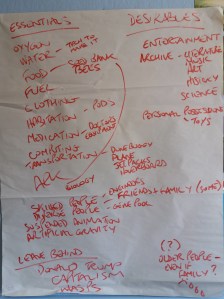 ESSENTIALS
OXYGEN
WATER - TECH TO MAKE IT
FOOD - SEED BANK
TREES
FUEL
CLOTHING
HABITATION - PODS
MEDICATION - DOCTORS EQUIPMENT
COMPUTING
TRANSPORTATION - DUNE BUGGY
PLANE
JET PACKS
HOVERBOARD
ARK
ECOLOGY
SKILLED PEOPLE - ENGINEERS
DIVERSE PEOPLE - FRIENDS + FAMILY (SOME)
GENE POOL
SUSPENDED ANIMATION
ARTIFICIAL GRAVITY
LEAVE BEHIND
DONALD TRUMP
CAPITALISM
DESIRABLES
ENTERTAINMENT
ARCHIVE - LITERATURE
MUSIC
ART
HISTORY
SCIENCE
PERSONAL POSSESSIONS
TOYS
(?)
OLDER PEOPLE -
EVEN IF
FAMILY?